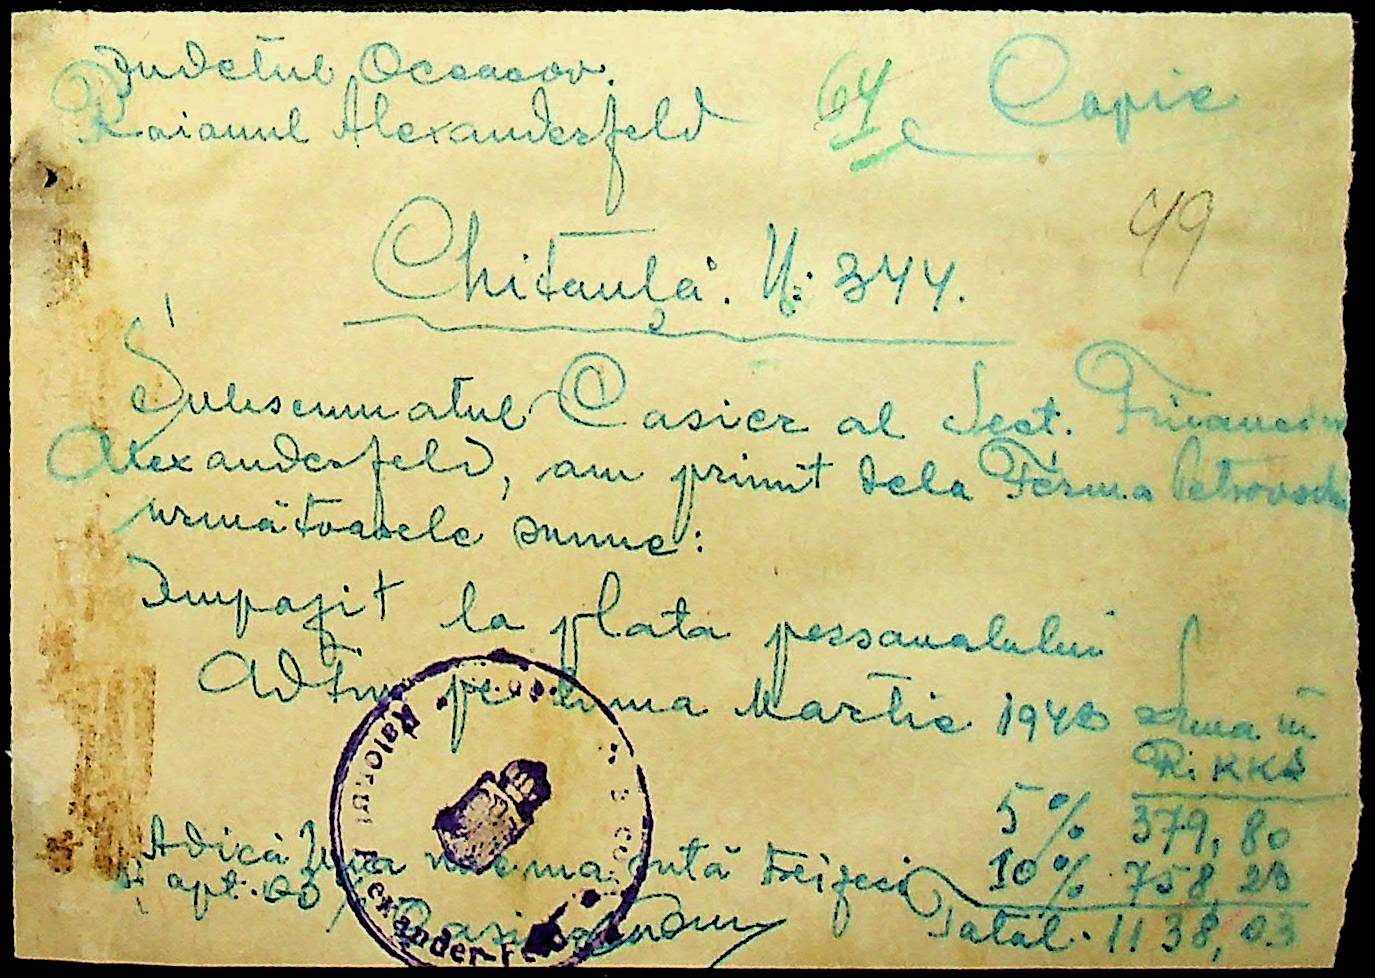 Judetul Oceacov.
Raionul Alexanderfeld
64
Copie
49
Chitanţă. N: 344.
Subsemnatul Casier al Sect. Financiar
Alexanderfeld, am primit dela Ferma Petrovschi
următoarele sume:
Impozit la plata personalului
Adtiv pe luna Martie 1943 Suma în
R.KKS
5% 379,80
10% 758,23
Total. 1138,03
Adică una mie una sută treizeci
şi opt. 03
Casier
Raionul Alexanderfeld